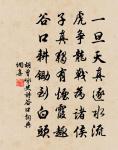 一旦天真逐水流
虎爭龍戰為諸侯
子真獨有煙霞趣
谷口耕鋤到白頭
胡曾詠史詩谷口